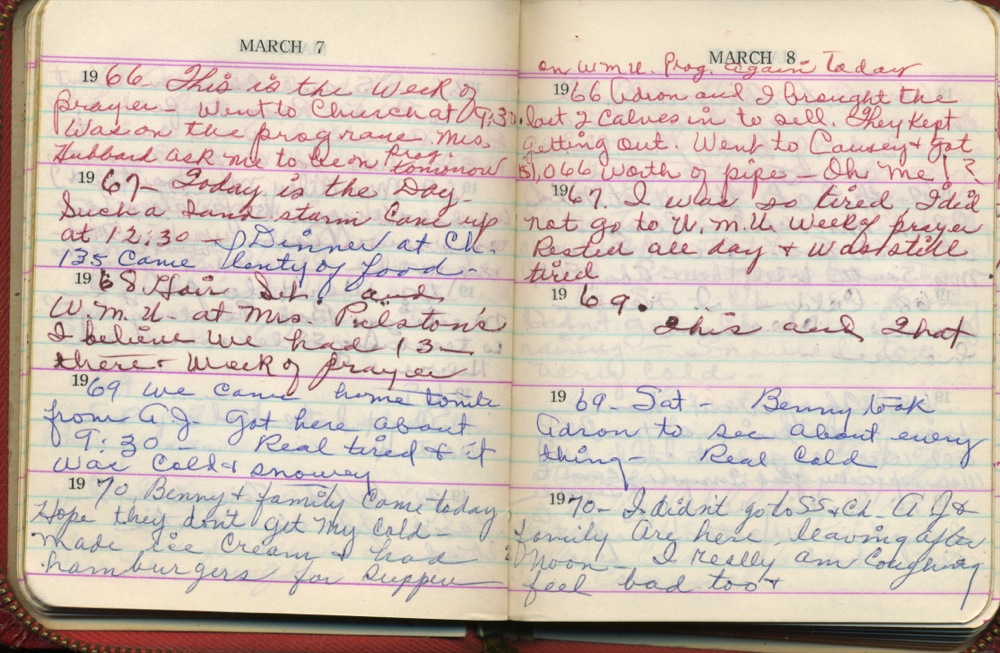 MARCH 7
1966. This is the Week of
prayer - Went to Church at 9:30.
Was on the programe. Mrs.
Hubbard ask me to be on Prog. tomorrow
1967 - Today is the Day -
Such a Sand storm came up
at 12:30 - Dinner at Ch.
135 came plenty of food -
1968 Hair Set. and
W.M.U. at Mrs. Pulston's
I believe we had 13 -
there - Week of prayer
1969 We came home tonite
from A.J. Got here about
9:30 - Real tired & it
was Cold & snowey
1970 Benny & family came today
Hope they don't get my cold -
made ice cream & had
hamburgers for supper
MARCH 8
on W.M.U. Prog. again Today
1966 Adron and I brought the
last 2 calves in to sell. They kept
getting out. Went to Causey & got
$1,066 worth of pipe - Oh Me!?
1967. I was so tired I did
not go to W.M.U. Week of prayer
Rested all day & was still
tired.
1969.
This and That
1969 - Sat - Benny took
Adron to see about every
thing - Real Cold
1970 - I didn't go to SS & Ch - A J &
family are here leaving after
noon - I really am coughing
feel bad too &